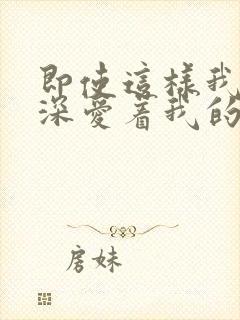 即使這樣我
深愛着我的
房妹